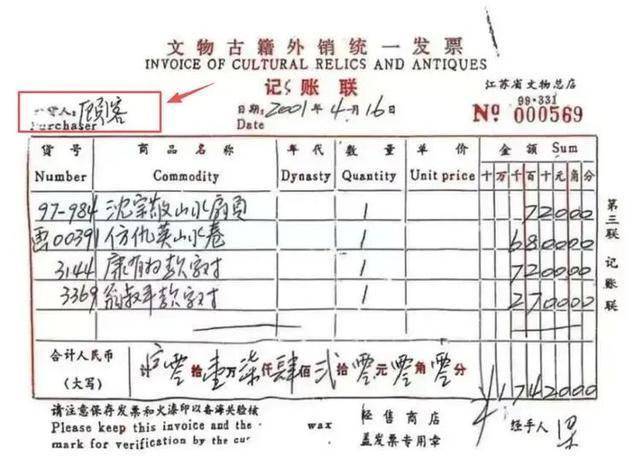 文物古籍外销统一发票
INVOICE OF CULTURAL RELICS AND ANTIQUES
记账联
江苏省文物总店
购货人：顾客
Purchaser
日期：2001年4月16日
Date
99·331
№ 000569
货号 商品名称 年代 数量 单价 金额 Sum
Number Commodity Dynasty Quantity Unit price 十万千百十元角分
97-984 沈宗敬山水扇页 1 72000
画00391 仿仇英山水卷 1 680000
3144 康有为款字对 1 720000
3369 翁叔平款字对 1 270000
合计人民币（大写） 零拾壹万柒仟肆佰贰拾零元零角零分 ¥1742000
第三联 记账联
请注意保存发票和火漆印以备海关验核
Please keep this invoice and the wax
mark for verification by the cus
经售商店
盖发票专用章
经手人